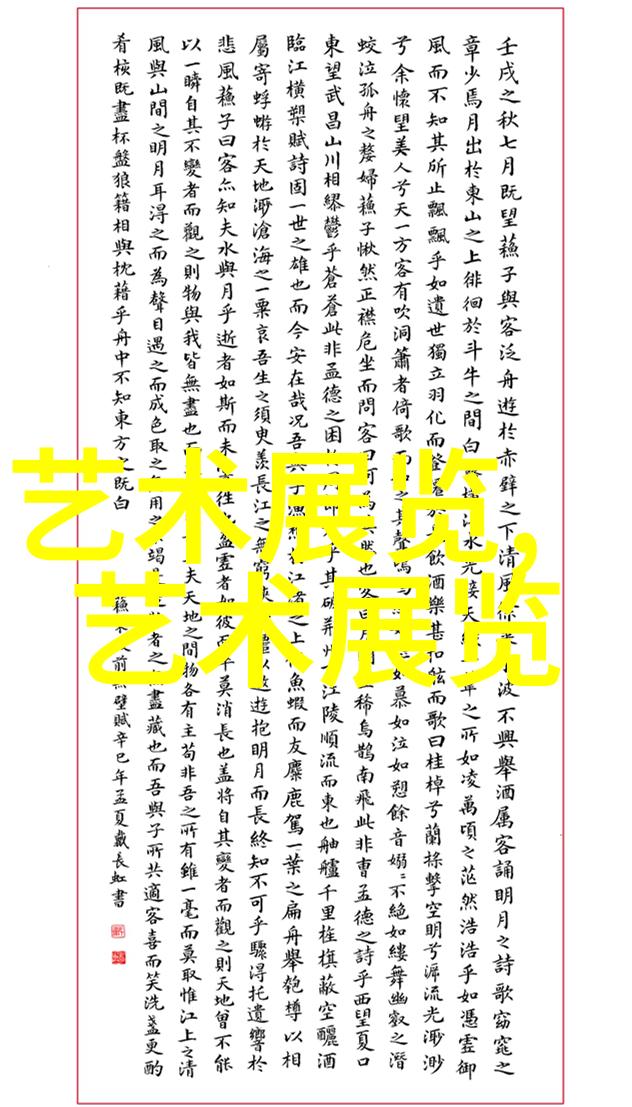 艺术展览,
艺术展览
壬戌之秋七月既望蘓子與客泛舟遊於赤壁之下清風波不興舉酒属客誦明月之詩歌窈窕之
章少焉月出於東山之上徘徊於斗牛之間白水接之所如凌萬頃之茫然浩浩乎如憑虛御
風而不知其所止飄飄乎如遺世獨立羽化而登於飲酒樂甚扣舷而歌曰桂棹兮蘭槳擊空明兮泝流光渺渺
兮余懷望美人兮天一方客有吹洞簫者倚歌而之其聲如慕如泣如愬餘音嫋嫋不絕如縷舞幽壑之潛
蛟泣孤舟之嫠婦蘓子愀然正襟危坐而問客曰也稀烏鵲南飛此非曹孟德之詩乎西望夏口
東望武昌山川相繆鬱乎蒼蒼此非孟德之困乎其破荊州江陵順流而東也舳艫千里旌旗蔽空釃酒
臨江橫槊賦詩固一世之雄也而今安在哉况吾與子漁江渚之上魚蝦而友麋鹿駕一葉之扁舟舉匏樽以相
屬寄蜉蝣於天地渺滄海之一粟哀吾生之須臾羨長江之無窮以遨遊抱明月而長終知不可乎驟得托遺響於
悲風蘓子曰客亦知夫水與月乎逝者如斯而未往盈虛者如彼而卒莫消長也盖將自其變者而觀之則天地曾不能
以一瞬自其不變者而觀之則物與我皆無盡也夫天地之間物各有主苟非吾之所有雖一毫而莫取惟江上之清
風與山間之明月耳得之而為聲目遇之而成色取之用之竭者之盡藏也而吾與子所共適客喜而笑洗盞更酌
肴核既盡杯盤狼籍相與枕藉乎舟中不知東方之既白
蘓前壁賦辛巳年孟夏戴長虹書